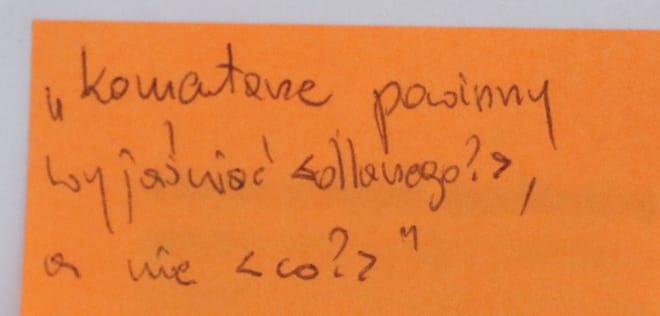 „Komentarze powinny
wyjaśniać <dlaczego?>,
a nie <co?>"